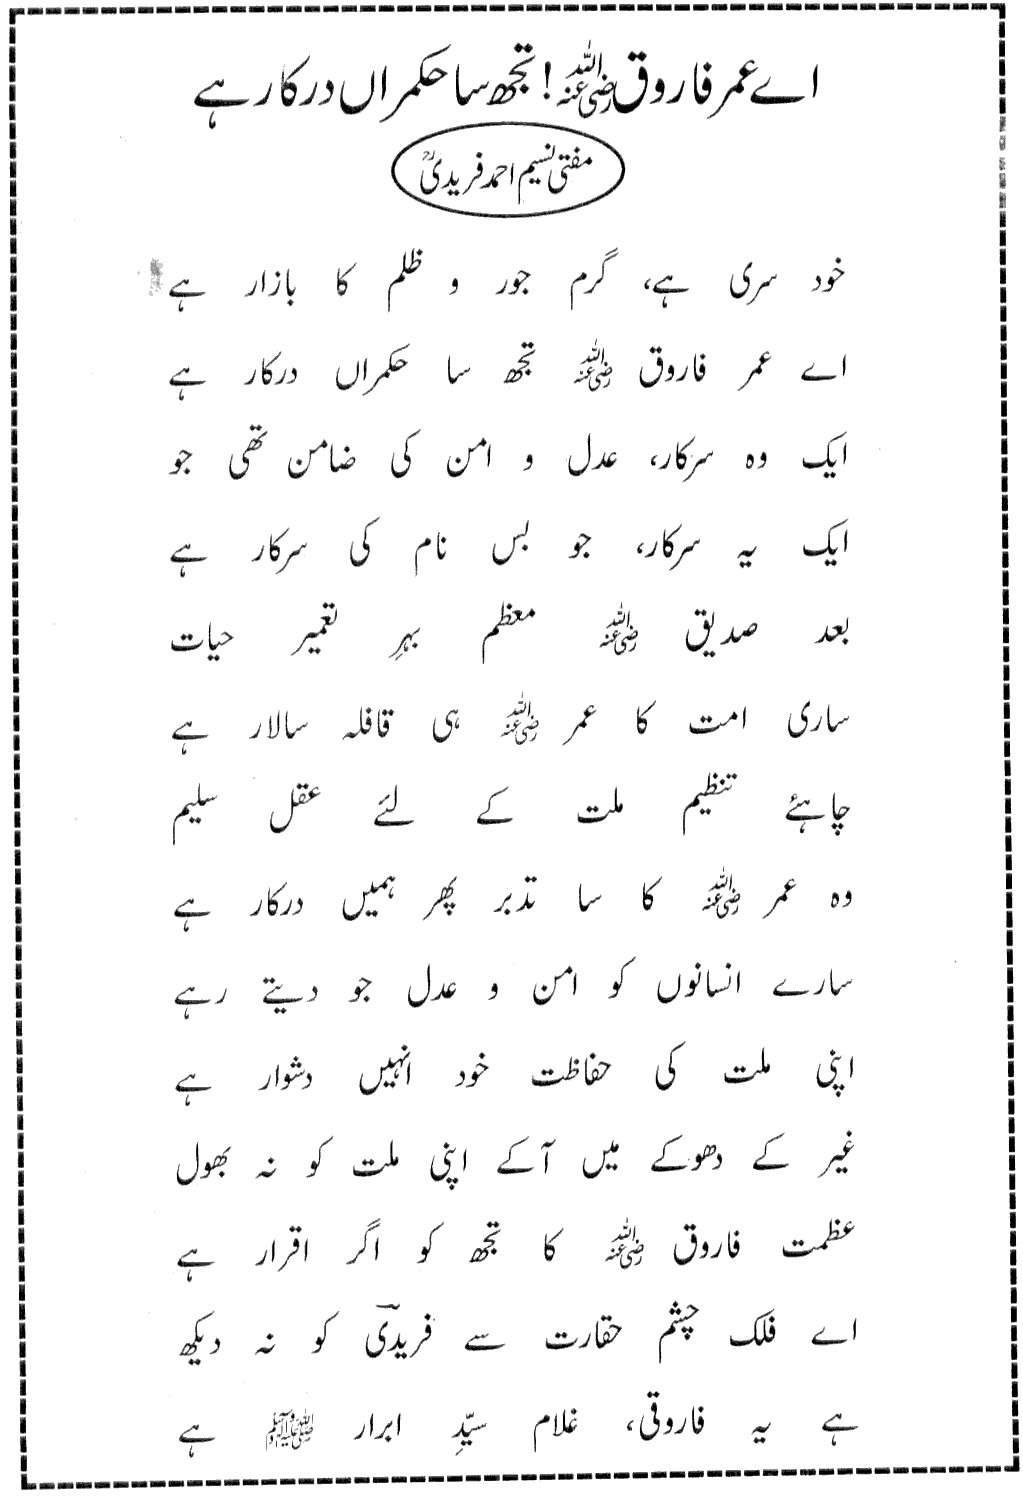 اے عمر فاروق رضی اللہ عنہ! تجھ سا حکمراں درکار ہے
مفتی نسیم احمد فریدیؒ
خود سری ہے، گرم جور و ظلم کا بازار ہے
اے عمر فاروق رضی اللہ عنہ تجھ سا حکمراں درکار ہے
ایک وہ سرکار، عدل و امن کی ضامن تھی جو
ایک یہ سرکار، جو بس نام کی سرکار ہے
بعد صدیق رضی اللہ عنہ معظم بہرِ تعمیر حیات
ساری امت کا عمر رضی اللہ عنہ ہی قافلہ سالار ہے
چاہئے تنظیم ملت کے لئے عقل سلیم
وہ عمر رضی اللہ عنہ کا سا تدبر پھر ہمیں درکار ہے
سارے انسانوں کو امن و عدل جو دیتے رہے
اپنی ملت کی حفاظت خود انہیں دشوار ہے
غیر کے دھوکے میں آکے اپنی ملت کو نہ بھول
عظمت فاروق رضی اللہ عنہ کا تجھ کو اگر اقرار ہے
اے فلک چشم حقارت سے فریدیؔ کو نہ دیکھ
ہے یہ فاروقی، غلام سیّدِ ابرار ﷺ ہے